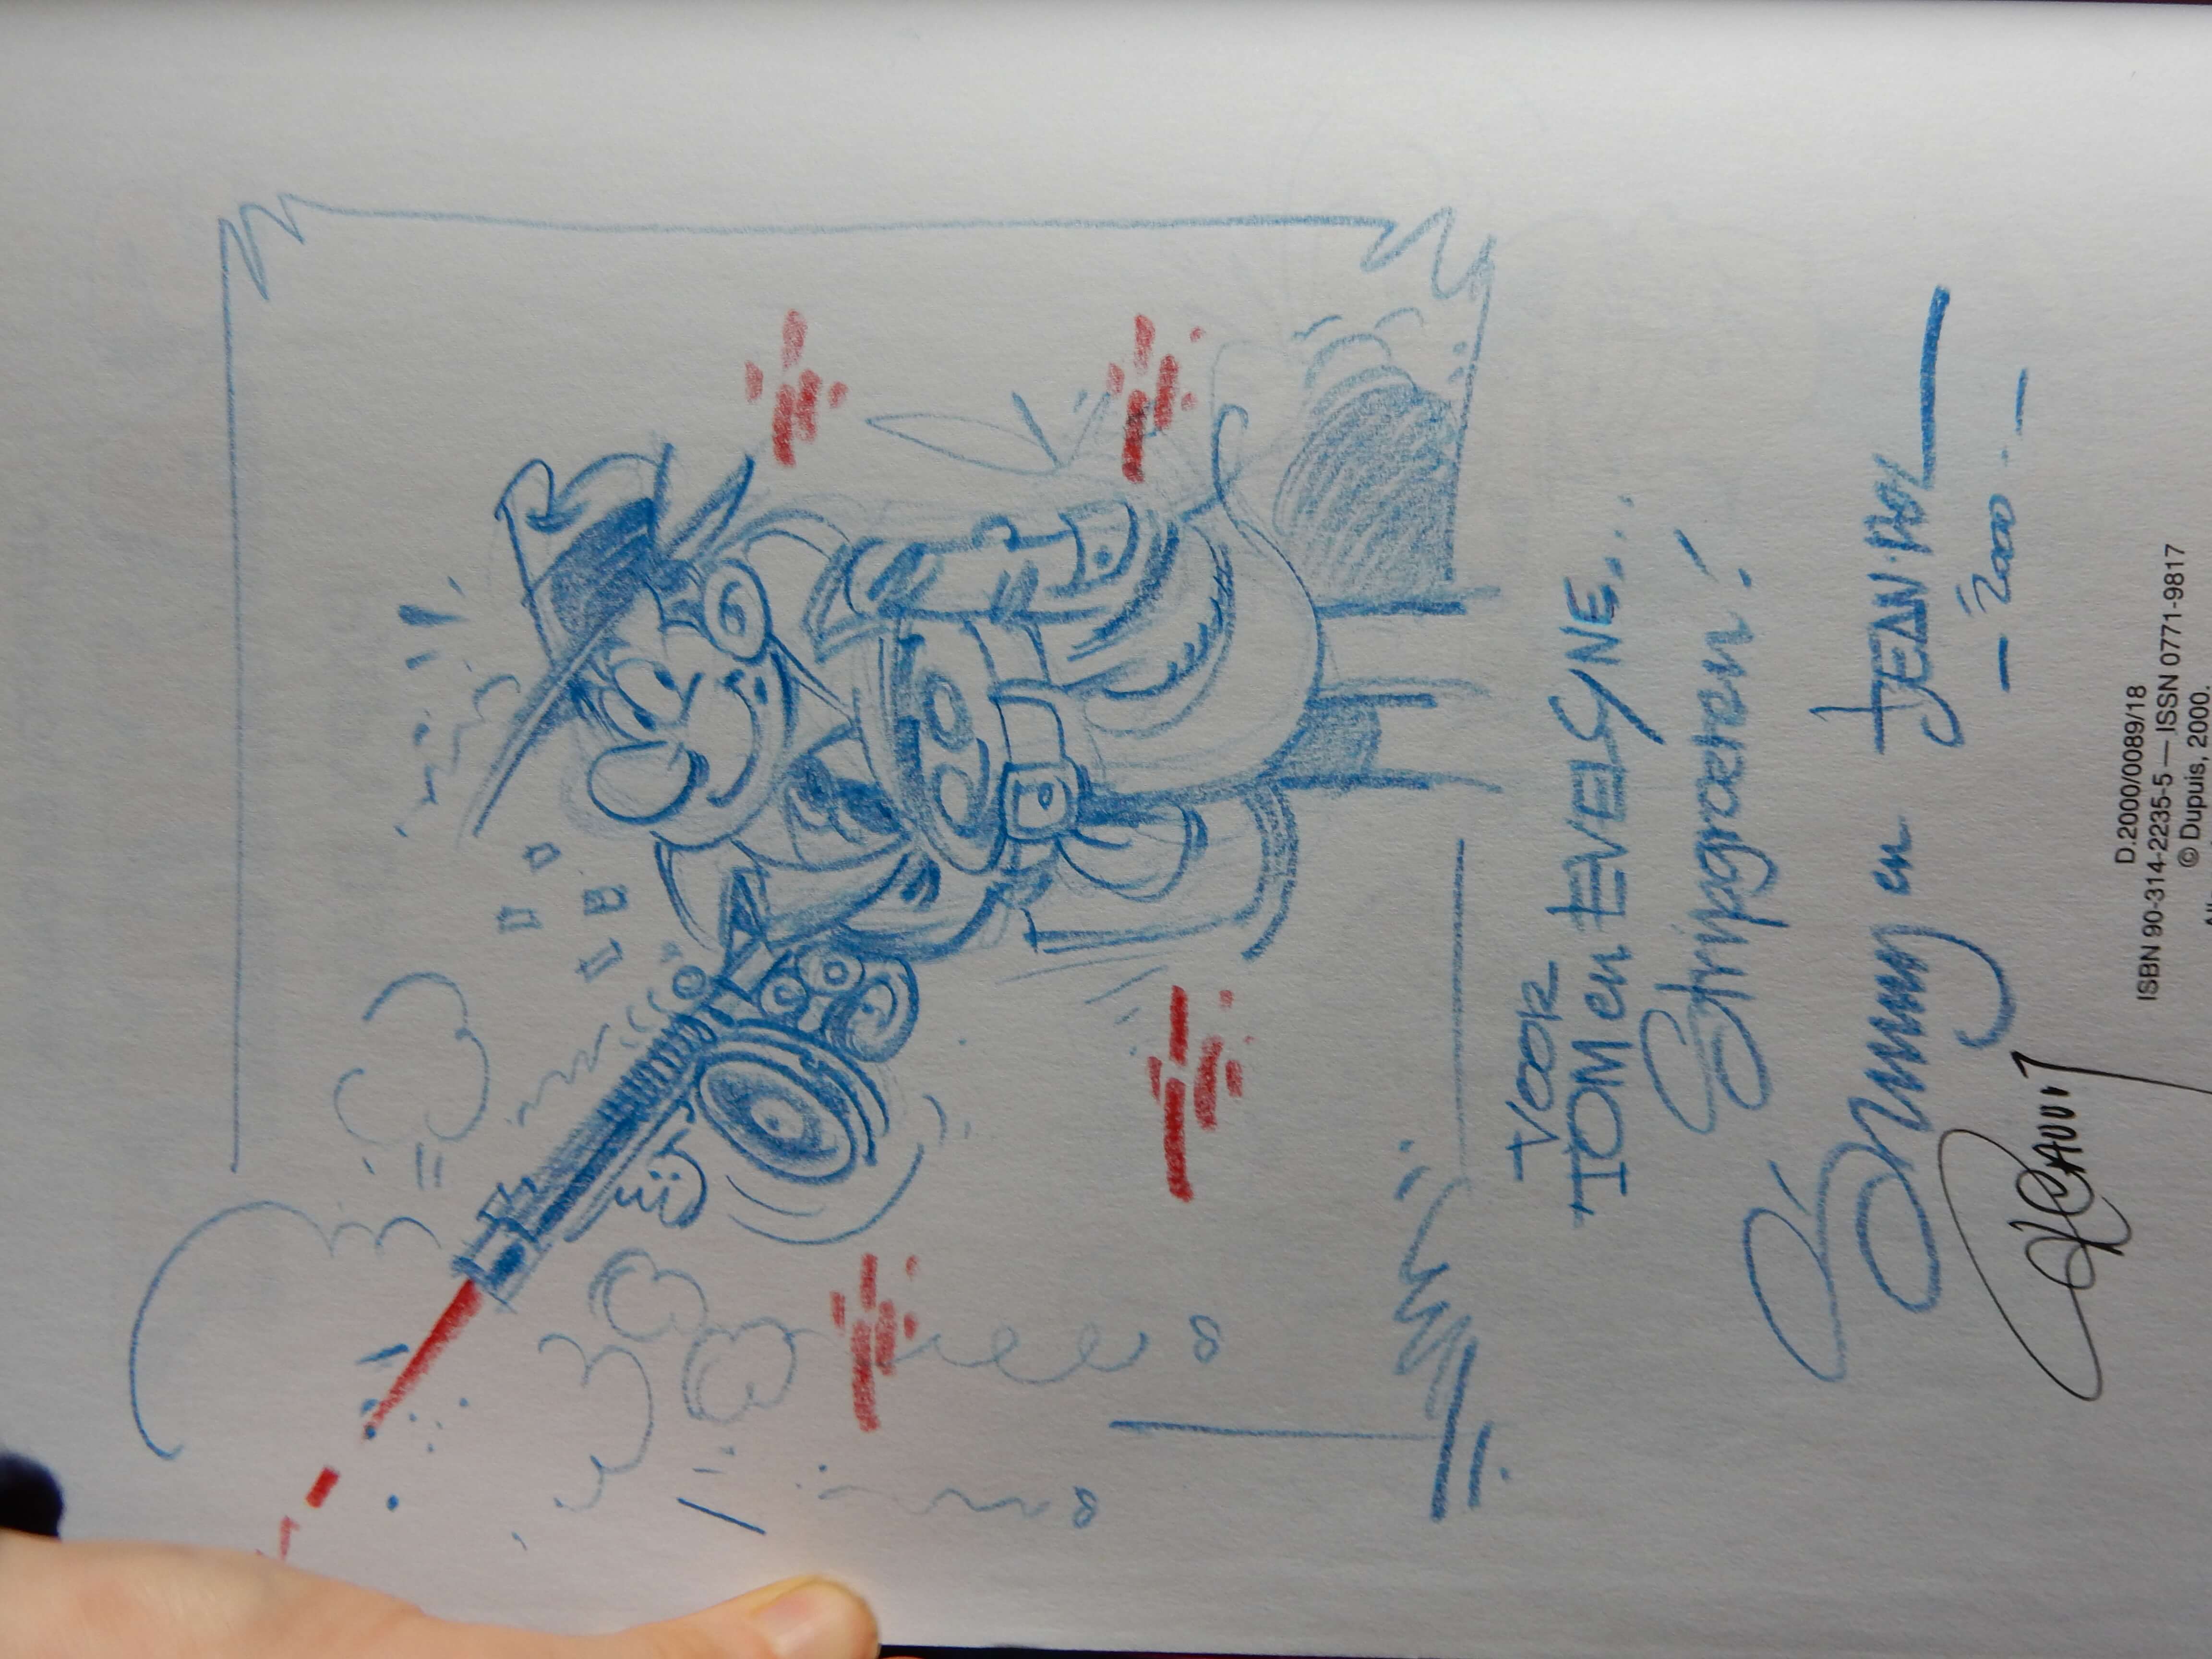 VOOR
TOM en EVELYNE...
Stripgroeten!
en JEAN-POL
- 2000 -
R CAUVIN
D.2000/0089/18
ISBN 90-314-2235-5 — ISSN 0771-9817
© Dupuis, 2000.